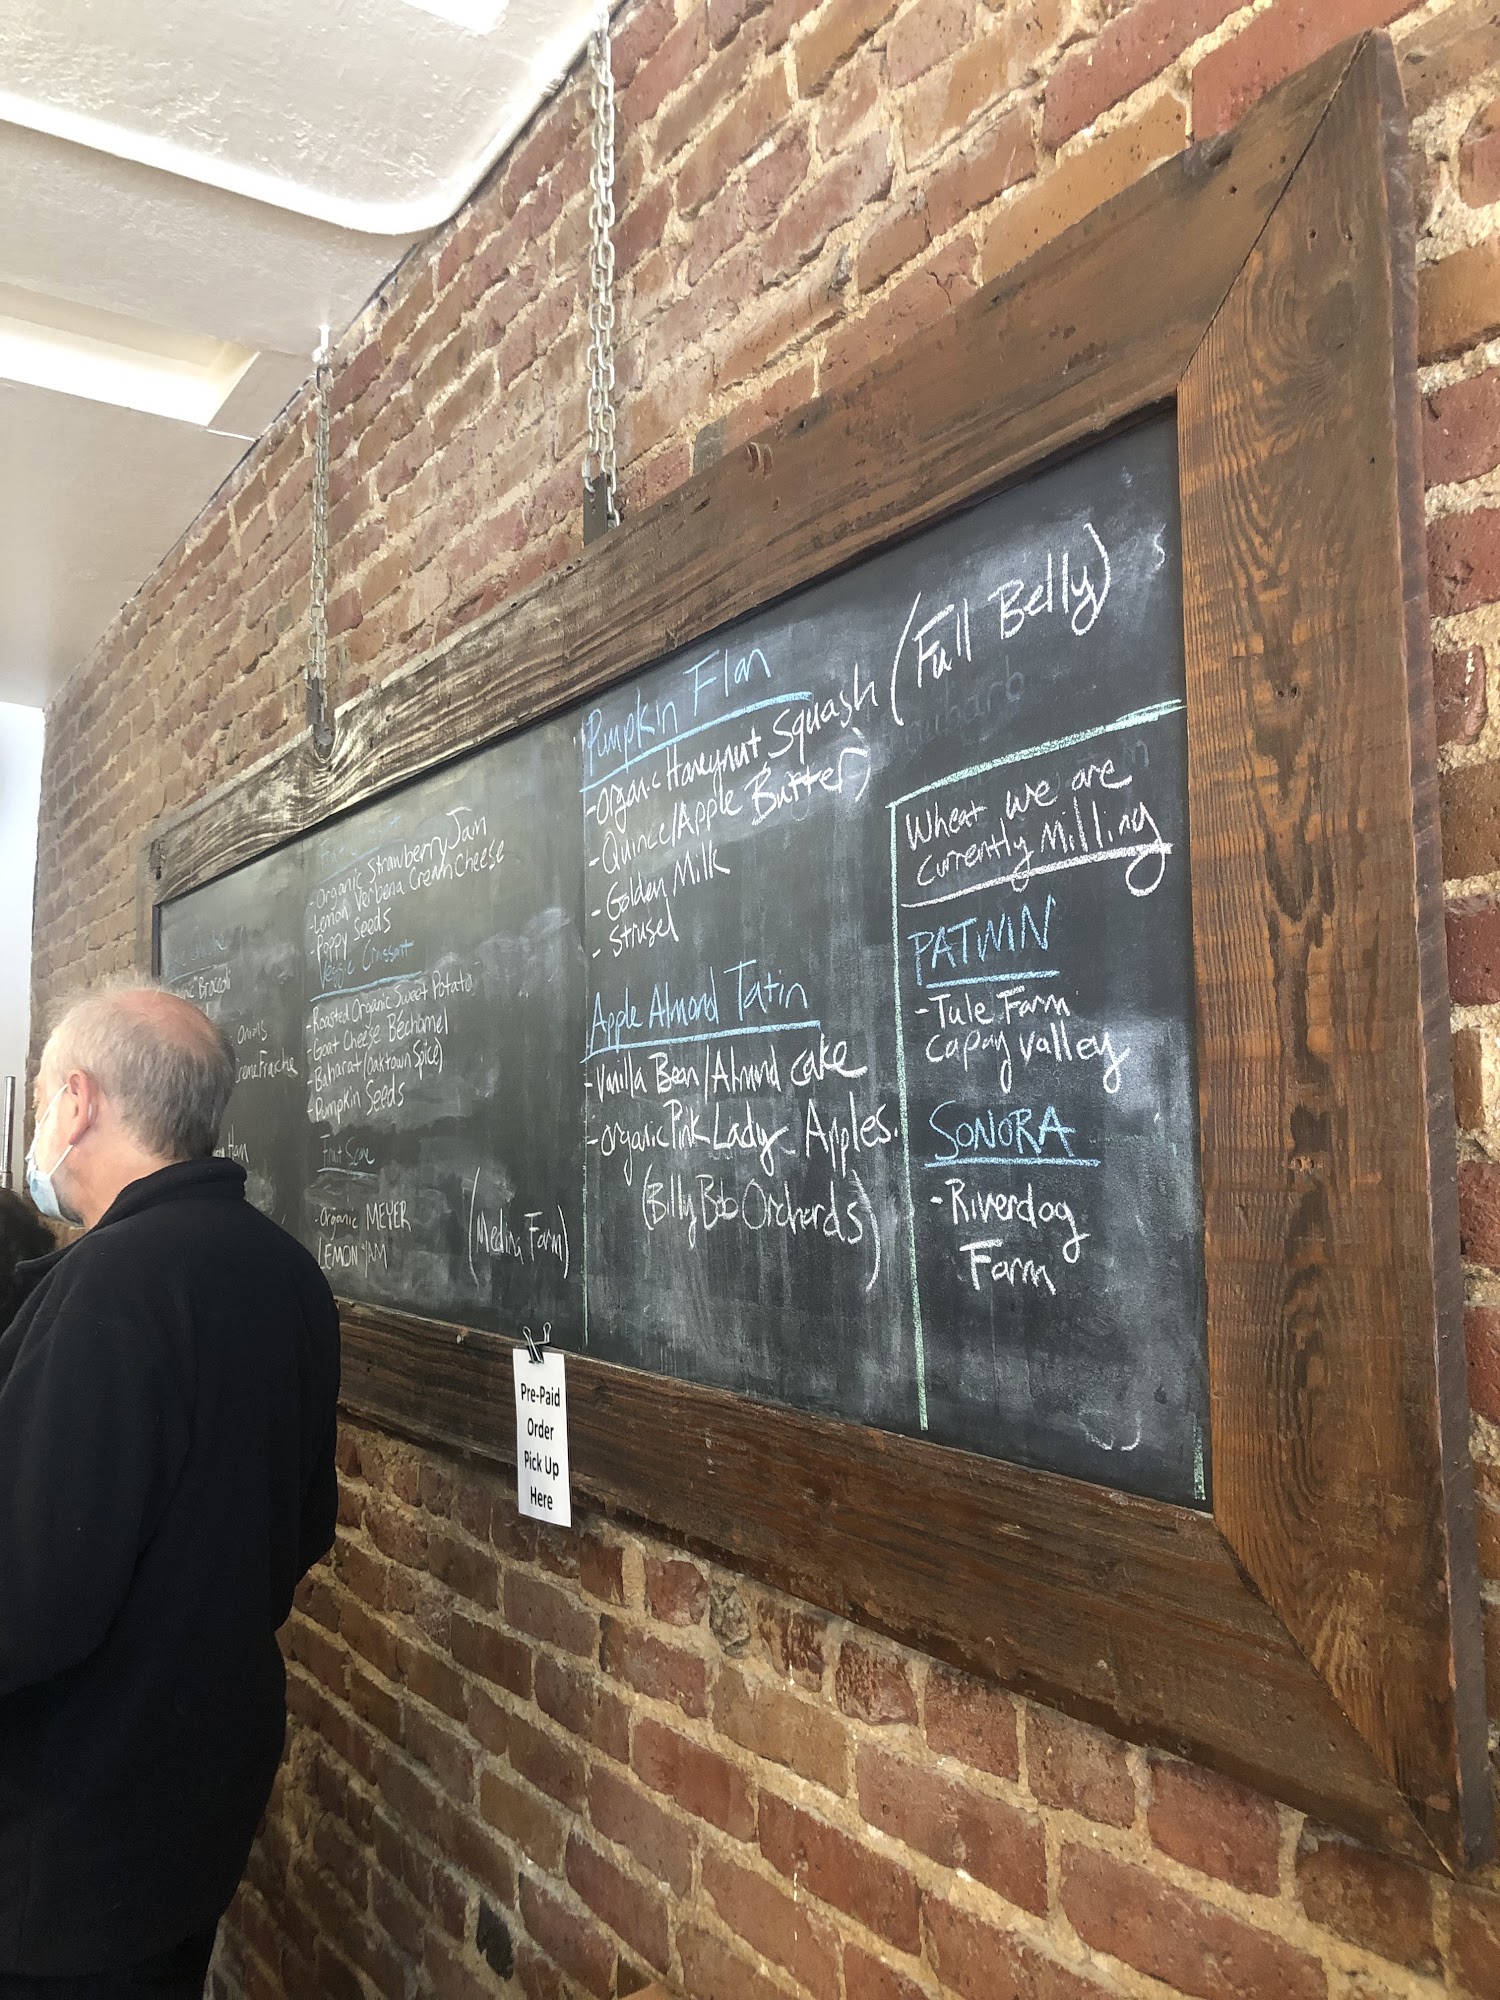 Broccoli
Onions
Creme Fraiche
Ham
- Organic Strawberry Jam
- Lemon Verbena Cream Cheese
- Poppy Seeds
Veggie Croissant
- Roasted Organic Sweet Potato
- Goat Cheese Béchamel
- Baharat (Oaktown Spice)
- Pumpkin Seeds
Fruit Scone
- Organic MEYER
LEMON JAM
(Medina Farm)
Pumpkin Flan
- Organic Honeynut Squash (Full Belly)
- Quince/Apple Butter)
- Golden Milk
- Strusel
Apple Almond Tatin
- Vanilla Bean/Almond cake
- Organic Pink Lady Apples.
(Billy Bob Orchards)
Wheat we are
currently Milling
PATWIN
- Tule Farm
Capay Valley
SONORA
- Riverdog
Farm
Pre-Paid
Order
Pick Up
Here